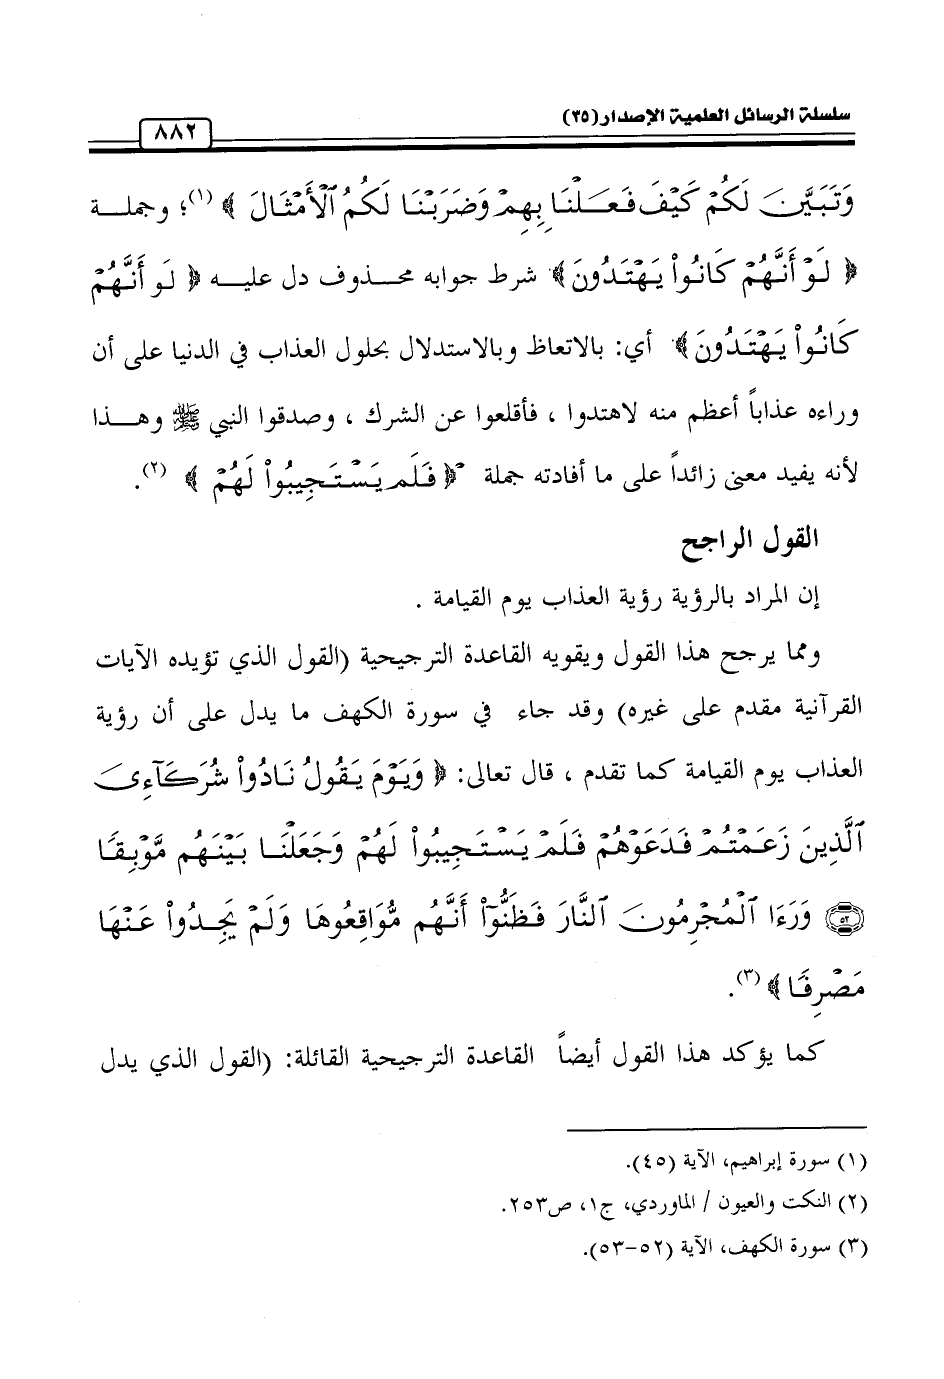 سلسلة الرسائل العلمية الإصدار(٣٥)
٨٨٢
وَتَبَيَّنَ لَكُمْ كَيْفَ فَعَلْنَا بِهِمْ وَضَرَبْنَا لَكُمُ ٱلْأَمْثَالَ ﴾ (١)؛ وجملة
﴿ لَوْ أَنَّهُمْ كَانُوا۟ يَهْتَدُونَ﴾ شرط جوابه محذوف دل عليه ﴿ لَوْ أَنَّهُمْ
كَانُوا۟ يَهْتَدُونَ﴾ أي: بالاتعاظ وبالاستدلال بحلول العذاب في الدنيا على أن
وراءه عذاباً أعظم منه لاهتدوا ، فأقلعوا عن الشرك ، وصدقوا النبي ﷺ وهذا
لأنه يفيد معنى زائداً على ما أفادته جملة ﴿ فَلَمْ يَسْتَجِيبُوا۟ لَهُمْ ﴾ (٢).
القول الراجح
إن المراد بالرؤية رؤية العذاب يوم القيامة .
ومما يرجح هذا القول ويقويه القاعدة الترجيحية (القول الذي تؤيده الآيات
القرآنية مقدم على غيره) وقد جاء في سورة الكهف ما يدل على أن ر�ية
العذاب يوم القيامة كما تقدم ، قال تعالى: ﴿ وَيَوْمَ يَقُولُ نَادُوا۟ شُرَكَآءِىَ
ٱلَّذِينَ زَعَمْتُمْ فَدَعَوْهُمْ فَلَمْ يَسْتَجِيبُوا۟ لَهُمْ وَجَعَلْنَا بَيْنَهُم مَّوْبِقًا
﴿٥٢﴾ وَرَءَا ٱلْمُجْرِمُونَ ٱلنَّارَ فَظَنُّوٓا۟ أَنَّهُم مُّوَاقِعُوهَا وَلَمْ يَجِدُوا۟ عَنْهَا
مَصْرِفًا ﴾ (٣).
كما يؤكد هذا القول أيضاً القاعدة الترجيحية القائلة: (القول الذي يدل
(١) سورة إبراهيم، الآية (٤٥).
(٢) النكت والعيون / الماوردي، ج١، ص٢٥٣.
(٣) سورة الكهف، الآية (٥٢-٥٣).